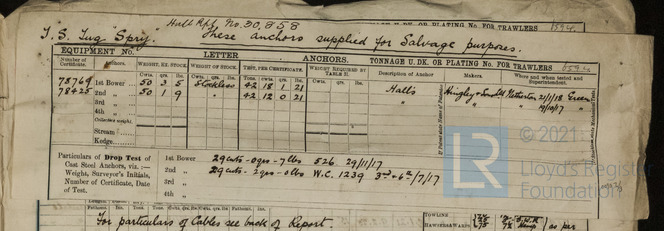 Hull Rpt. No. 30,858
U. DK. OR PLATING NO. FOR TRAWLERS 1594
T. S. Tug Spry. These anchors supplied for Salvage purposes.
EQUIPMENT No. LETTER ANCHORS. TONNAGE U. DK. OR PLATING No. FOR TRAWLERS 1594
Number of Certificate. Anchors. WEIGHT, EX. STOCK WEIGHT OF STOCK. TEST, PER CERTIFICATE. WEIGHT REQUIRED BY TABLE 2. Description of Anchor Makers. Where and when tested and Superintendent.
Cwts. qrs. lbs. Cwts. qrs. lbs. Tons cwts. qrs. lbs. Cwts. qrs. lbs.
78769 1st Bower 50 3 5 Stockless 42 18 1 21 Hall's Hingley Netherton 21/1/18 Green
78425 2nd „ 50 1 9 „ 42 12 0 21 „ „ „ 19/10/17 „
3rd „
4th „
Collective weight.
Stream
Kedge
Particulars of Drop Test of Cast Steel Anchors, viz. :— Weight, Surveyor's Initials, Number of Certificate, Date of Test.
1st Bower 29 cwts - 0 qrs - 7 lbs 526 29/11/17
2nd „ 29 cwts - 2 qrs - 0 lbs W.C. 1239 3rd + 6th/7/17
3rd „
4th „
© 2021
LR
Lloyd's Register
Foundation
For particulars of Cables see back of Report.
TOWLINE
HAWSERS & WARPS 75 as per